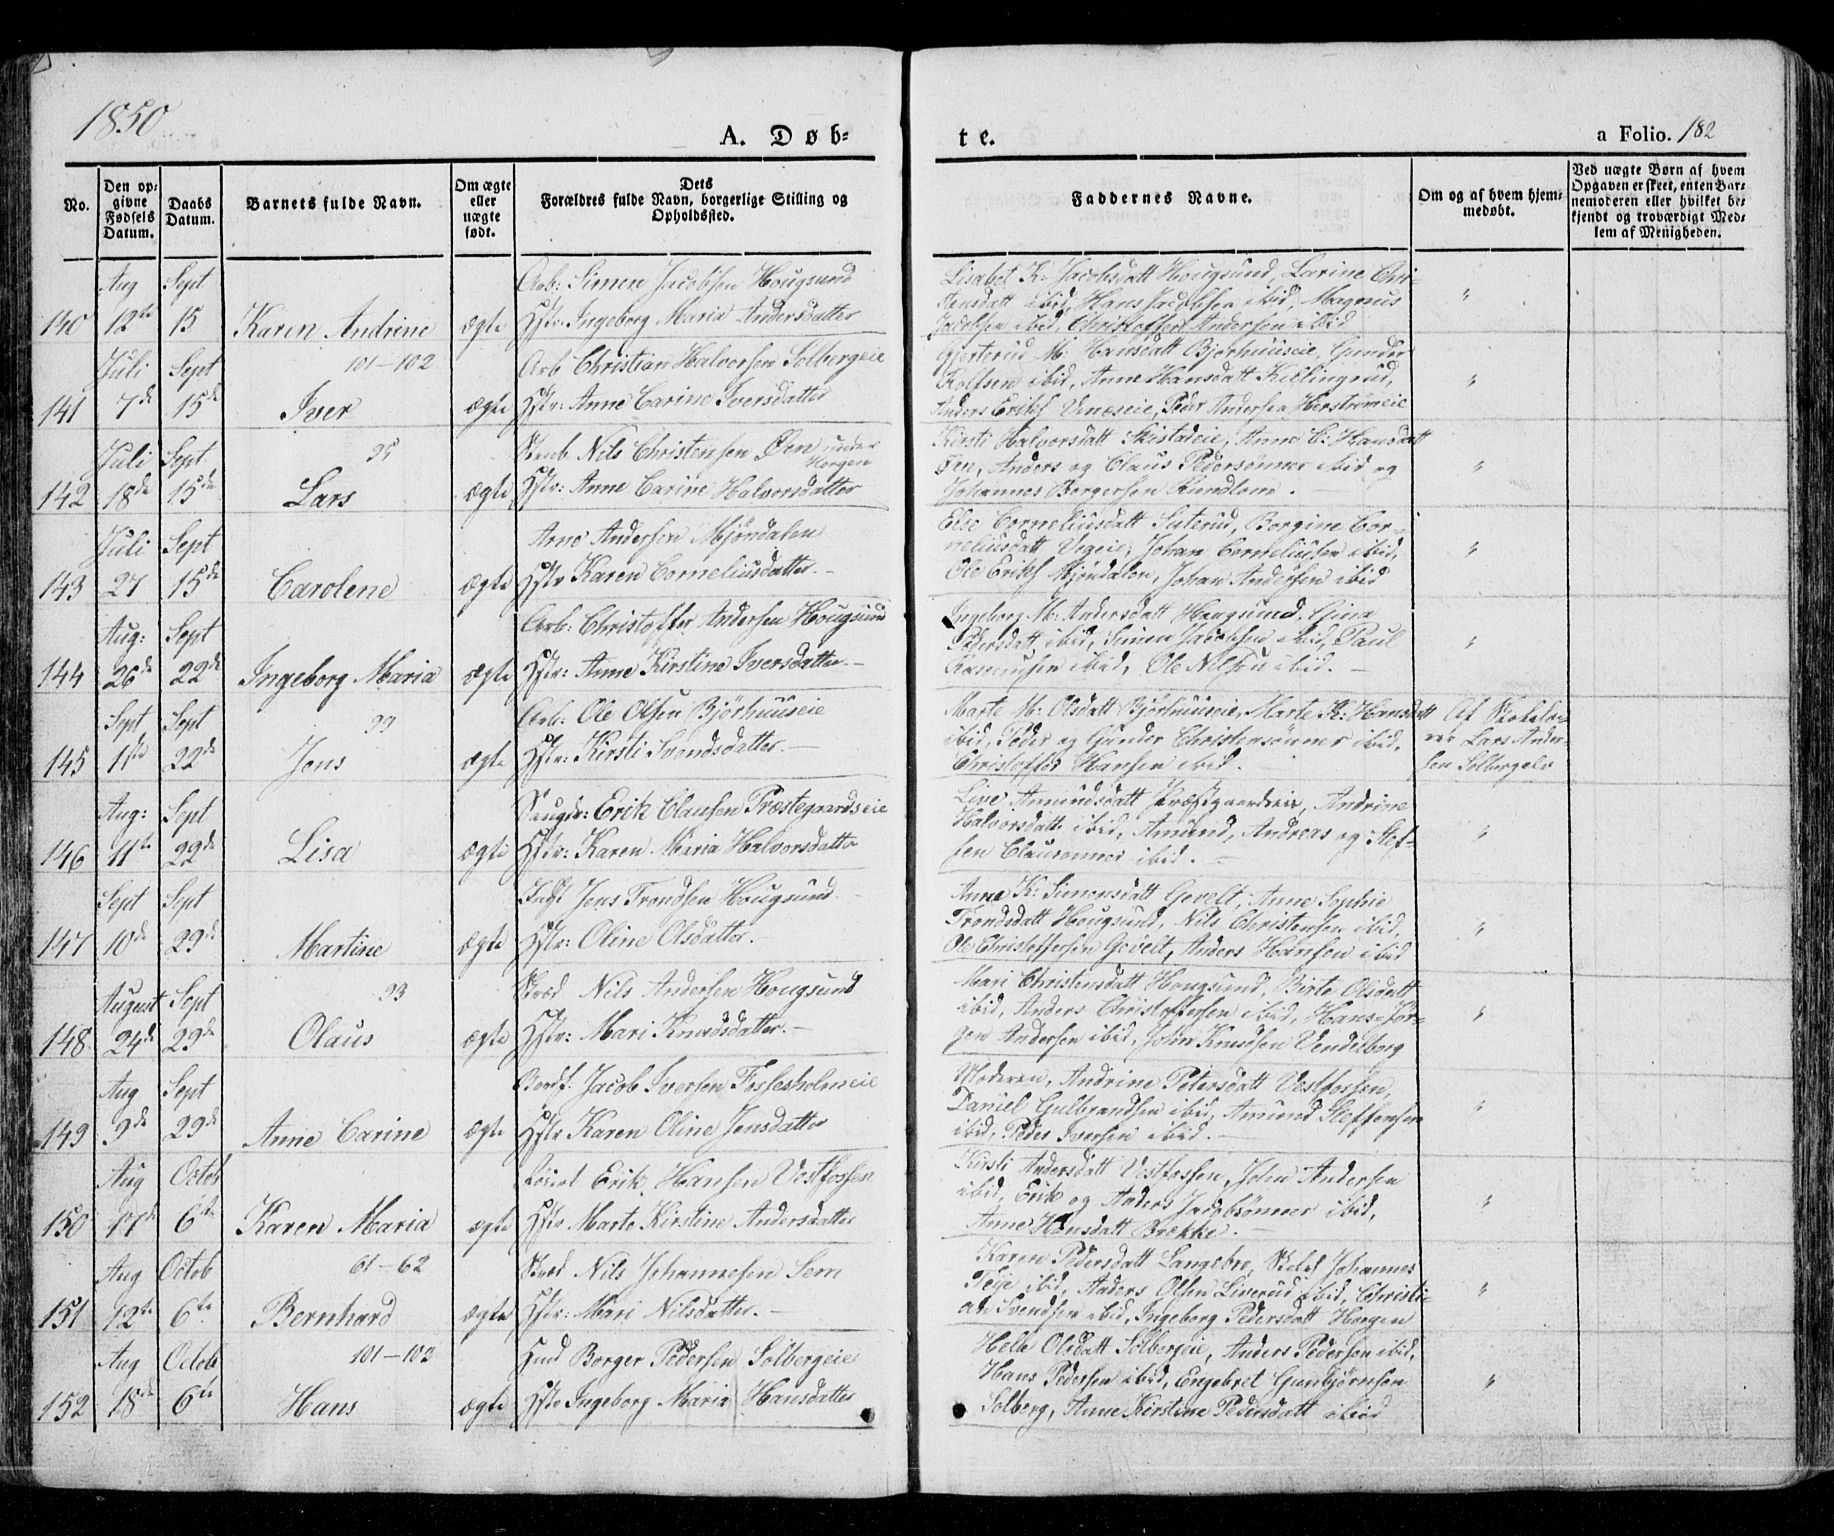 1850
A. Døb-
te.
a Folio. 182
No.
Den op-
givne
Fødsels
Datum.
Daabs
Datum.
Barnets fulde Navn.
Om ægte
eller
uægte
født.
Dets
Forældres fulde Navn, borgerlige Stilling og
Opholdssted.
Faddernes Navne.
Om og af hvem hjem-
medøbt.
Ved uægte Børn af hvem
Opgaven er skeet, enten Bar-
nemoderen eller hvilket be-
kjendt og troværdigt Med-
lem af Menigheden.
Aug Sept Arb: Simen Jacobsen Hougsund
140 12te 15 Karen Andrine ægte Hstr: Ingeborg Maria Andersdatter
Lisabet K: Jacobsdatt Hougsund, Larine Chri-
stensdatt ibid, Hans Jacobsen ibid, Magnus
Jacobsen ibid, Christoffer Andersen ibid
"
Juli Sept 101-102 Arb Christian Halvorsen Solbergeie
141 7de 15de Iver ægte Hstr: Anne Carine Iversdatter
M: Hansdatt Bjørhuuseie, Gunder
Rolfsen ibid, Anne Hansdatt Killingrud,
Anders Eriks Peder Andersen Herstrømeie
"
Juli Sept 95 Nils Christensen Øen under
Horgen
142 18de 15de Lars ægte Hstr: Anne Carine Halvorsdatter
Kirsti Halvorsdatt Skistadeie, Anne C: Hansdatt
Øen, Anders og Claus Pedersønner ibid og
Johannes Borgersen
"
Juli Sept Arne Andersen Mjøndalen
143 27 15de Carolene ægte Hstr Karen Corneliusdatter.
Else Corneliusdatt Borgine Cor-
neliusdatt Johan Corneliussen ibid,
Ole Eriks Mjøndalen, Johan Andersen ibid
"
Aug: Sept Arb: Christoffer Andersen Hougsund
144 26de 22de Ingeborg Maria ægte Hstr: Anne Kirstine Iversdatter.
Ingeborg M: Andersdatt Hougsund, Gina
Pedersdatt ibid, Simen Jacobsen ibid, Paul
Rasmussen ibid, Ole Nilsen ibid.
"
Sept Sept 99 Arb: Ole Olsen Bjørhuuseie
145 11te 22de Jens ægte Hstr: Kirsti Svendsdatter.
Marte M: Olsdatt Bjørhuuseie, Marte K: Hansdatt
ibid, Peder og Gunder Christensønner ibid,
Christoffer Hansen ibid.
Af Skolelæ-
rer Lars Ander-
sen Solbergelv
Aug: Sept Erik Clausen Præstegaardseie
146 11te 22de Lisa ægte Hstr: Karen Maria Halvorsdatter
Live Amundsdatt Præstegaardseie, Andrine
Halvorsdatt ibid, Amund, Andreas og Stef-
fen Clausønner ibid.
"
Sept Sept Indst Jens Trondsen Hougsund
147 10de 29de Martine ægte Hstr: Oline Olsdatter.
Anne K: Simonsdatt Gevelt, Anne Sophie
Trondsdatt Hougsund, Nils Christensen ibid,
Ole Christoffersen Gevelt, Anders Hansen ibid
"
August Sept 93 Skræd Nils Andersen Hougsund
148 24de 29de Olaus ægte Hstr: Mari Knudsdatter.
Mari Christensdatt Hougsund, Birte Olsdatt
ibid, Anders Christoffersen ibid, Hans Jør-
gen Andersen ibid, John Knudsen Vendelborg
"
Aug Sept Jacob Iversen Fossesholmeie
149 9de 29de Anne Carine ægte Hstr Karen Oline Jensdatter
Moderen, Andrine Petersdatt Vestfossen,
Daniel Gulbrandsen ibid, Amund Steffensen
ibid, Peder Iversen ibid.
"
Aug Octob Erik Hansen Vestfossen
150 17de 6te Karen Maria ægte Hstr Marte Kirstine Andersdatter
Kirsti Andersdatt Vestfossen, John Andersen
ibid, Erik og Anders Jacobsønner ibid,
Anne Hansdatt Brække.
"
Aug Octob 61-62 Skræd Nils Johannesen Sem
151 12te 6te Bernhard ægte Hstr: Mari Nilsdatter.
Karen Pedersdatt Langebro, Skolel Johannes
ibid, Anders Olsen Liverud ibid, Christi-
an Svendsen ibid, Ingeborg Pedersdatt Horgen
"
Aug Octob 101-103 Huusmd Borger Pedersen Solbergeie
152 18de 6te Hans ægte Hstr Ingeborg Maria Hansdatter
Helle Olsdatt Solbergeie, Anders Pedersen ibid,
Hans Pedersen ibid, Engebret Gunbjørnsen
Solberg, Anne Kirstine Pedersdatt ibid
"